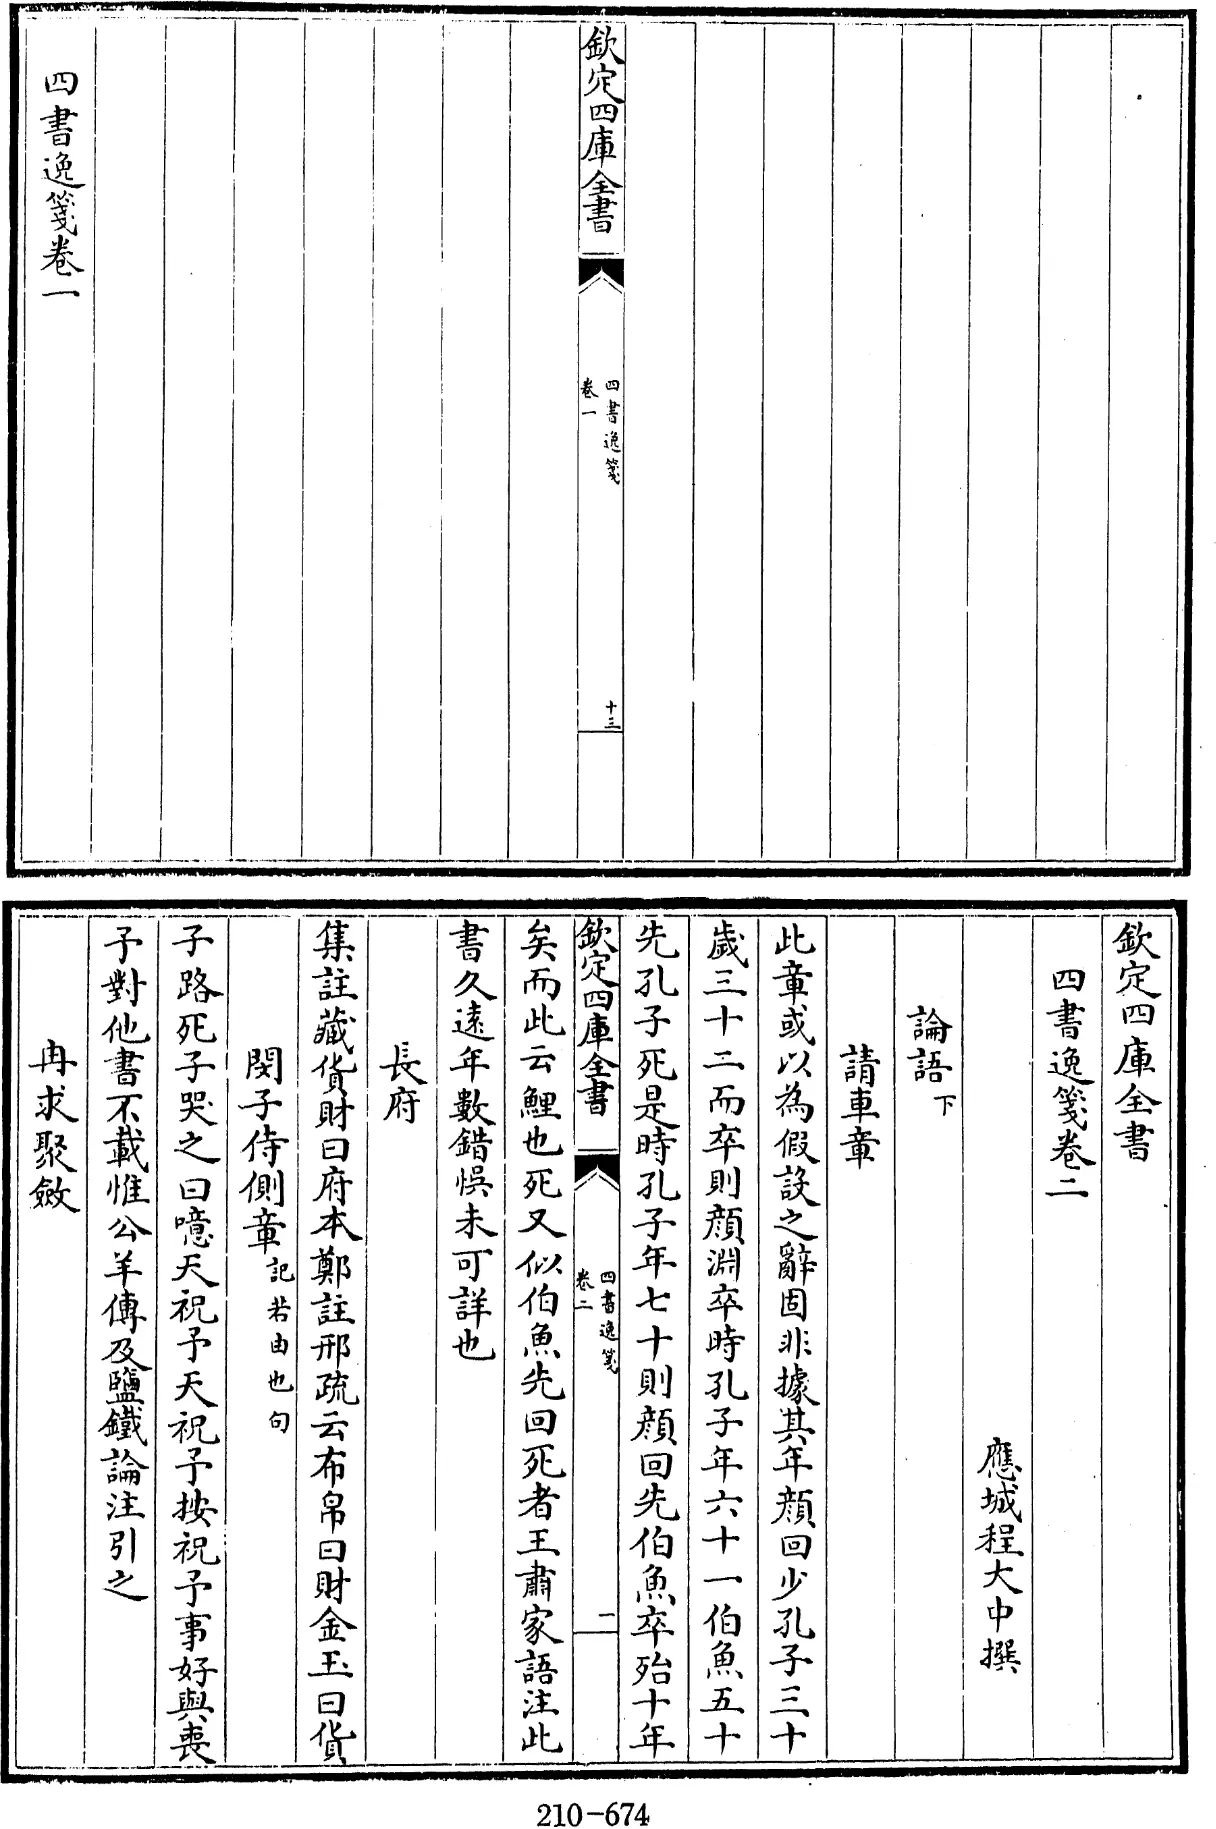 欽定四庫全書
四書逸箋
卷一
十三
四書逸箋卷一
欽定四庫全書
四書逸箋卷二
應城程大中撰
論語下
請車章
此章或以為假設之辭固非據其年顔回少孔子三十
歲三十二而卒則顔淵卒時孔子年六十一伯魚五十
先孔子死是時孔子年七十則顔回先伯魚卒殆十年
欽定四庫全書
四書逸箋
卷二
一
矣而此云鯉也死又似伯魚先回死者王肅家語注此
書久遠年數錯悞未可詳也
長府
集註藏貨財曰府本鄭註邢疏云布帛曰財金玉曰貨
閔子侍側章記若由也句
子路死子哭之曰噫天祝予天祝予按祝予事好與喪
予對他書不載惟公羊傳及鹽鐵論注引之
冉求聚斂
210-674